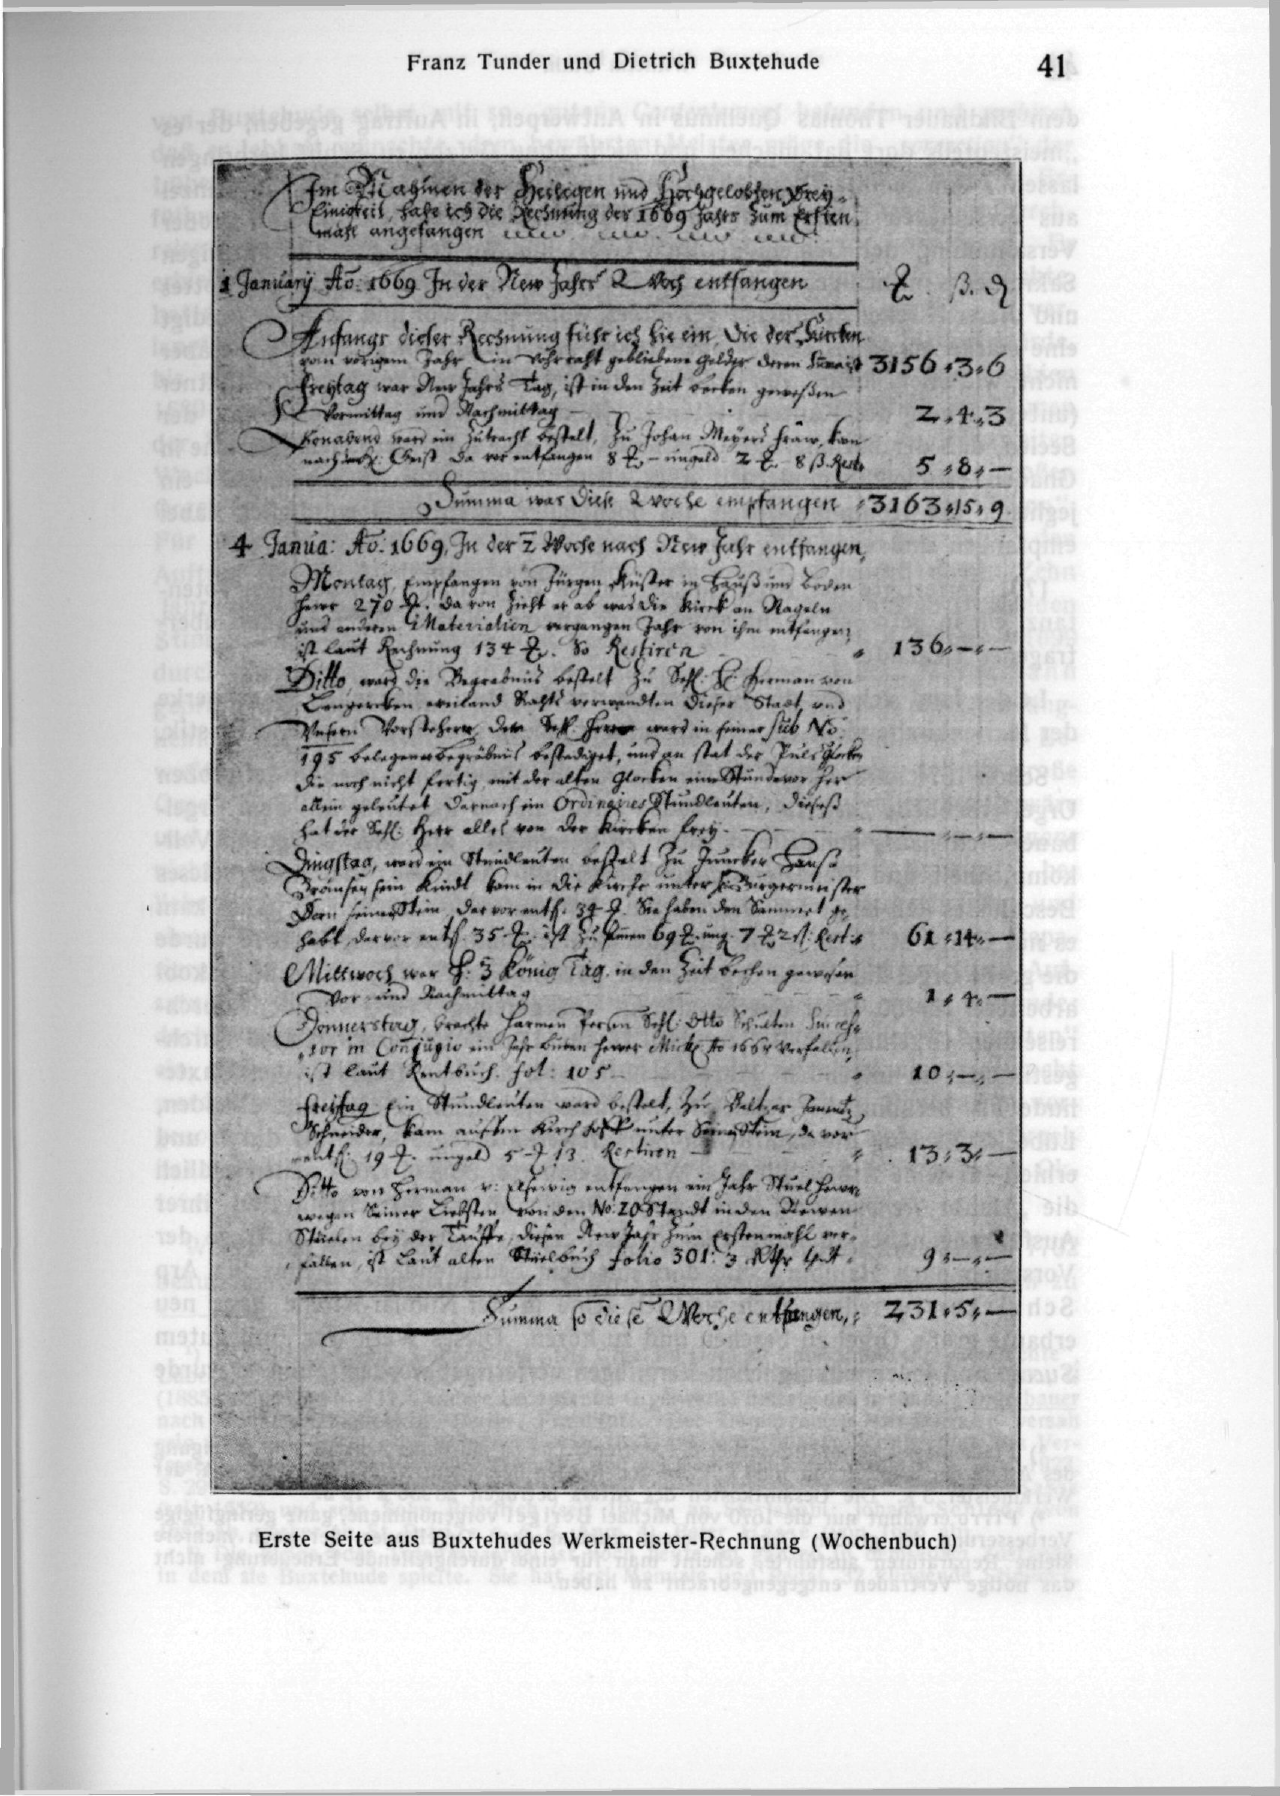 Franz Tunder und Dietrich Buxtehude
41
Im Nahmen der Heiligen und Hochgelobten Drey-
Einigkeit, habe ich die Rechnung der 1669 Jahrs zum Ersten
mahl angefangen
1 Januarij Ao: 1669 In der New Jahrs Woch entfangen
Anfangs dieser Rechnung führ ich hie ein, die der Kirchen
vom vorigem Jahr in vohrraht gebliebene gelder deren Summa ist 3156 " 3 " 6
Freytag war New Jahrs Tag, ist in den Zeit becken geweßen
Vormittag und Nachmittag 2 " 4 " 3
Sonabend ward ein zutracht bestelt, zu Johan Meyers fraw, kam
nach Geist da vor entfangen 8 ungeld 2 8 ß. Rest 5 " 8 " —
Summa was diese Woche empfangen " 3163 " 15 " 9
4 Janua: Ao: 1669, In der 2 Woche nach New Jahr entfangen,
Montag, Empfangen von Jürgen Küster in Hauß und Boden
hewr 270 da von zieht er ab was die Kirch an Nageln
und anderen Materialien vergangen Jahr von ihm entfangen
ist laut Rechnung 134 So Restiren " 136 " — " —
Ditto, ward die Begrabnüs bestelt zu Sehl: H: Herman von
Lengercken weiland Rahts verwandten dieser Stadt und
Unsern Vorstehern, der Sehl. Herr ward in seiner sub No:
195 belegenen begräbnüs bestediget, und an stat der Puls Glocken
die noch nicht fertig, mit der alten Glocken eine Stunde vor her
allein geleutet darnach ein Ordinaries Stundleuten, dieses
hat der Sehl: Herr alles von der Kirchen frey. " — " — " —
Dingstag, ward ein Stundleuten bestelt zu Juncker Hanß
Brömsen sein Kindt kam in die Kirche unter H. Bürgermeister
Dorn seinen Stein, dar vor entf: 34 Sie haben den Sammet ge-
habt, dervor entf. 35 ist zu samen 69 ung. 7 2 ß: Rest: " 61 " 14 " —
Mittwoch war H: 3 König Tag. in den Zeit becken gewesen
Vor und Nachmittag " 1 " 4 " —
Donnerstag, brachte Harmen Sehl: Otto Schulten Succes-
sor in Conjugio ein Jahr Buden hewer Mich: Ao 1668 verfallen,
ist laut Rentbuch. fol: 105 " 10 " — " —
Freytag Ein Stundleuten ward bestelt, zu Baltzer
Schneider, kam auf den Kirch hoff unter Seinen Stein, da vor
entf: 19 ungeld 5 13. Restiren " 13 " 3 " —
Ditto von Herman v: Elswig entfangen ein Jahr Stuel hewr
wegen Seiner Liebsten von den No: 20 Standt in den Newen
Stüelen bey der Tauffe, diesen New Jahr zum Erstenmahl ver-
fallen, ist Laut alten Stüelbuch folio 301: 3 Rthr " 9 " — " —
Summa so diese Woche entfangen, " 231 " 5 " —
Erste Seite aus Buxtehudes Werkmeister-Rechnung (Wochenbuch)